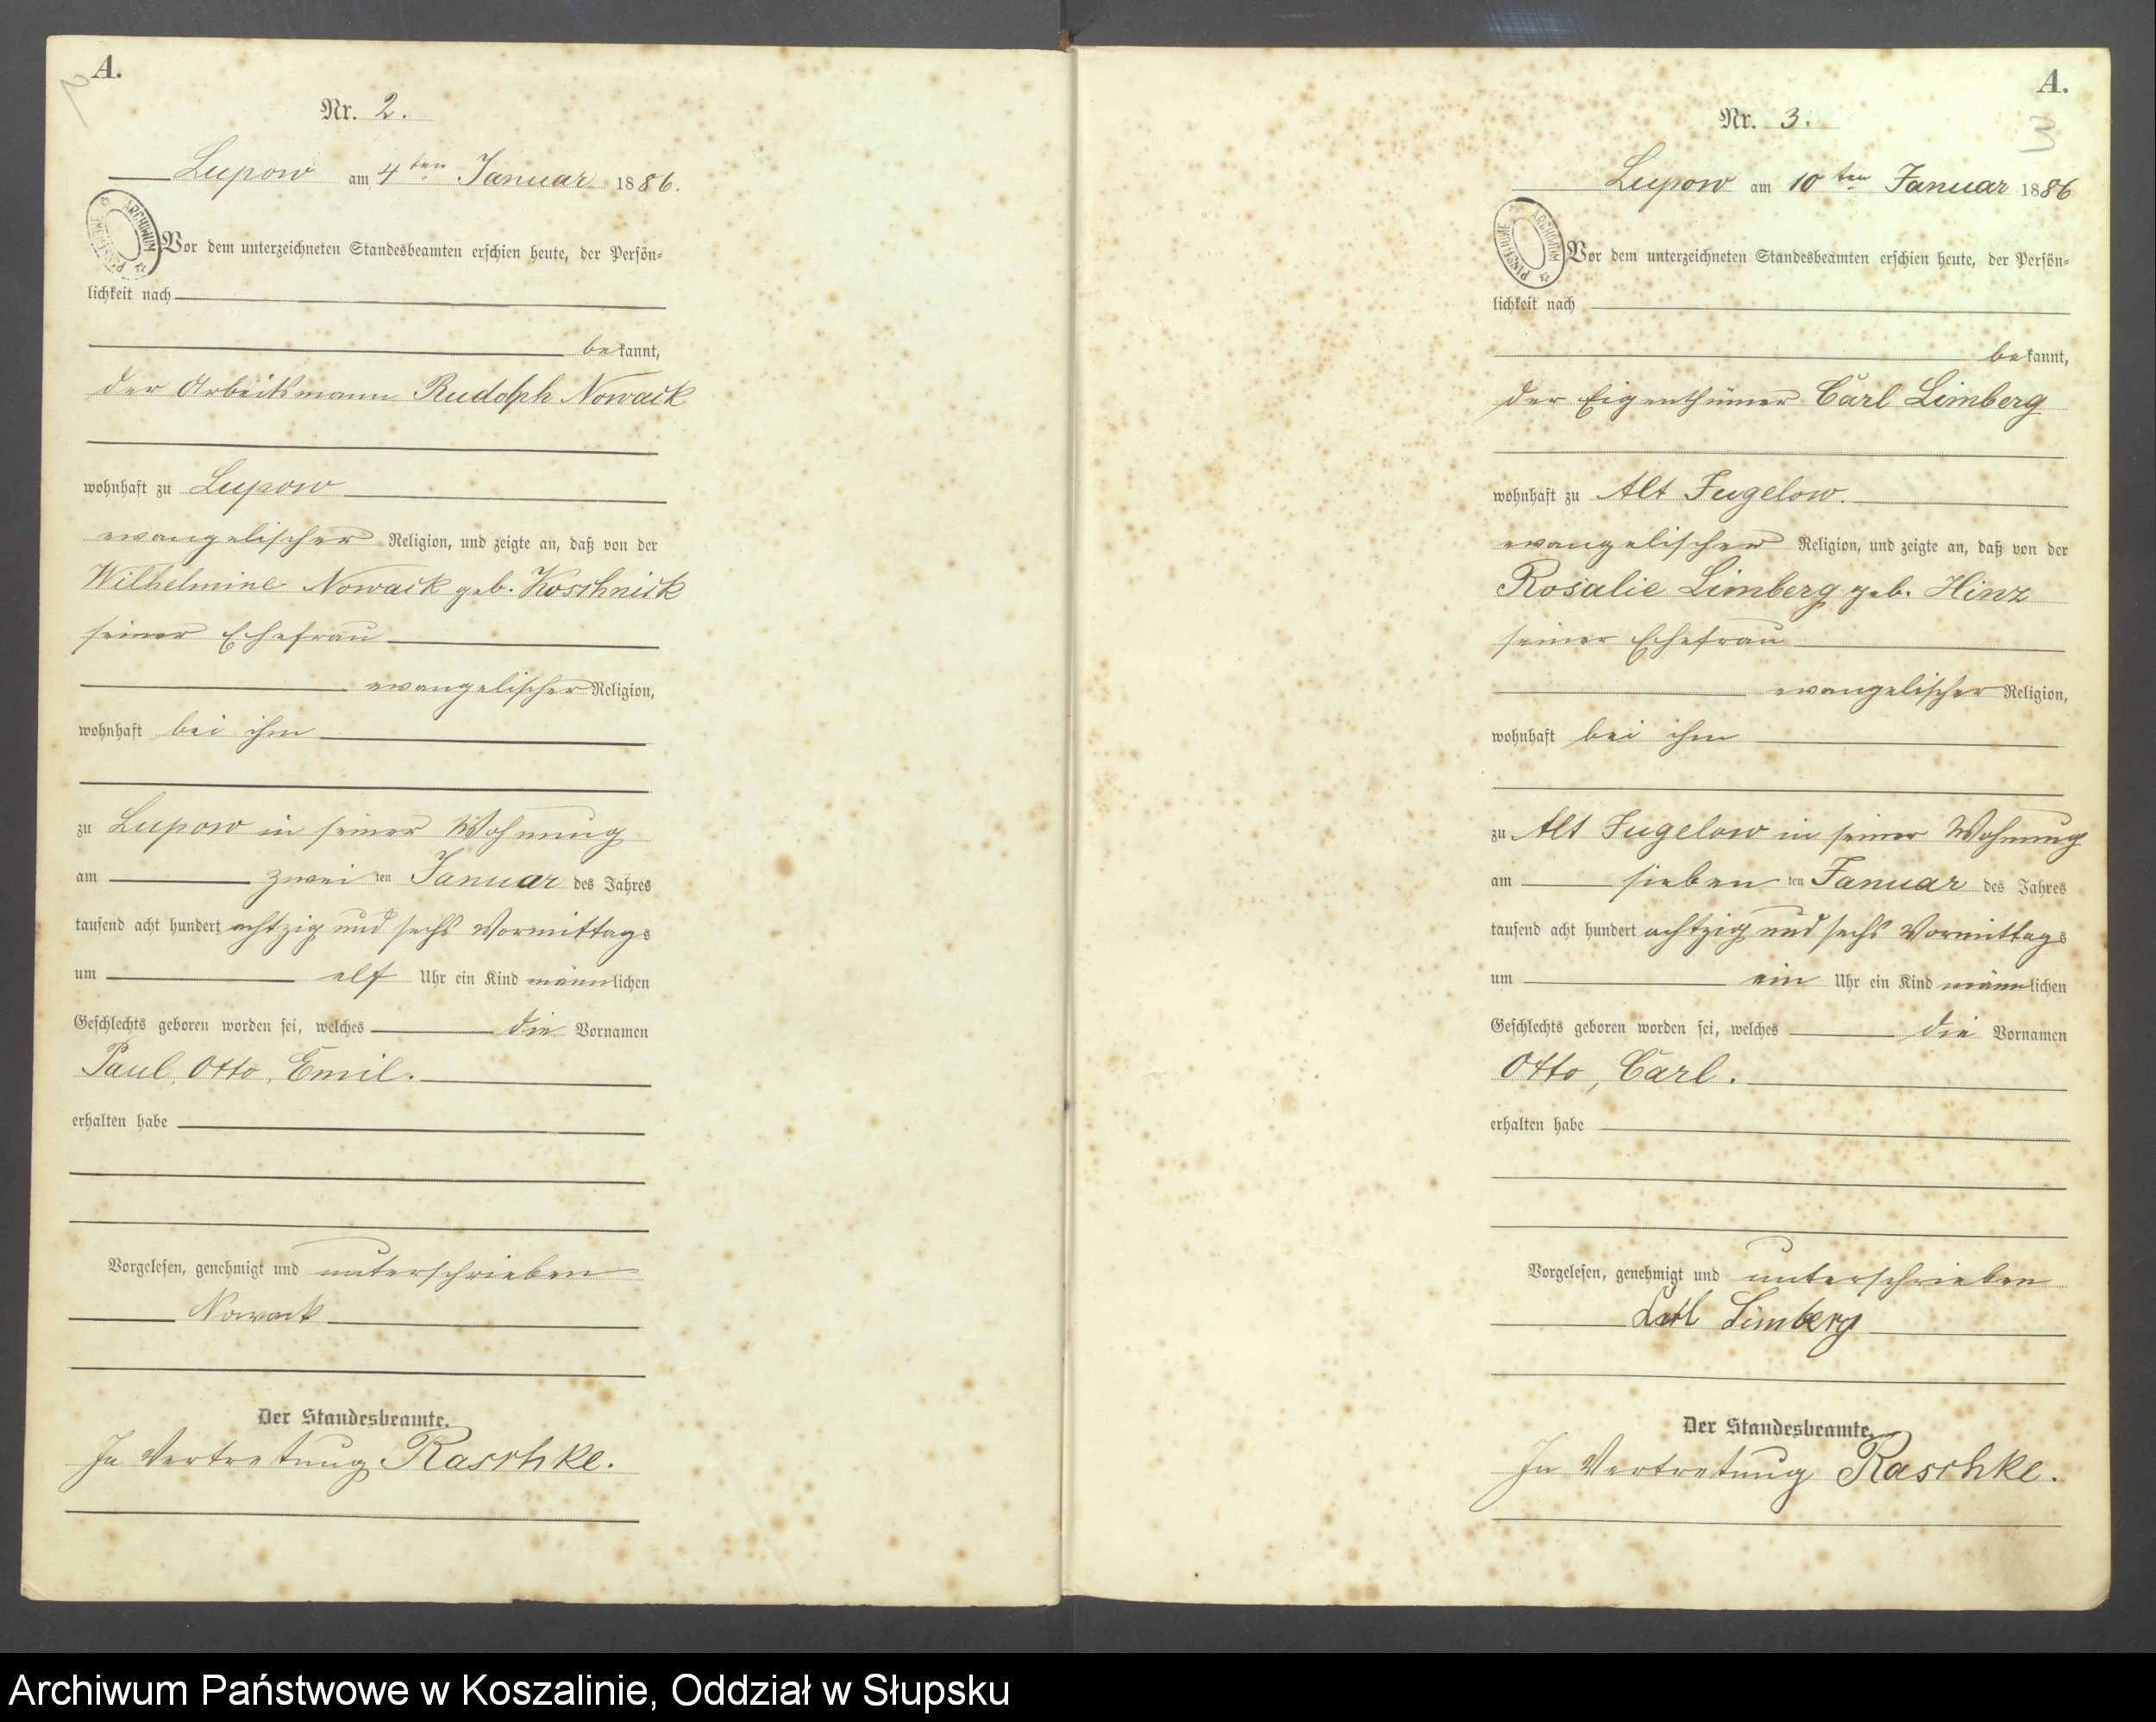 A.
2
Nr. 2.
Lupow am 4ten Januar 1886.
ARCHIWUM PAŃSTWOWE
Vor dem unterzeichneten Standesbeamten erschien heute, der Persön-
lichkeit nach
bekannt,
der Arbeitsmann Rudolph Nowack
wohnhaft zu Lupow
evangelischer Religion, und zeigte an, daß von der
Wilhelmine Nowack geb. Koschnick
seiner Ehefrau
evangelischer Religion,
wohnhaft bei ihm
zu Lupow in seiner Wohnung
am zweiten Januar des Jahres
tausend acht hundert achtzig und sechs Vormittags
um elf Uhr ein Kind männlichen
Geschlechts geboren worden sei, welches die Vornamen
Paul, Otto, Emil.
erhalten habe
Vorgelesen, genehmigt und unterschrieben
Nowack
Der Standesbeamte.
In Vertretung Raschke.
A.
3
Nr. 3.
Lupow am 10ten Januar 1886
ARCHIWUM PAŃSTWOWE
Vor dem unterzeichneten Standesbeamten erschien heute, der Persön-
lichkeit nach
bekannt,
der Eigenthümer Carl Limberg
wohnhaft zu Alt Jugelow.
evangelischer Religion, und zeigte an, daß von der
Rosalie Limberg geb. Hinz
seiner Ehefrau
evangelischer Religion,
wohnhaft bei ihm
zu Alt Jugelow in seiner Wohnung
am siebenten Januar des Jahres
tausend acht hundert achtzig und sechs Vormittags
um ein Uhr ein Kind männlichen
Geschlechts geboren worden sei, welches die Vornamen
Otto, Carl.
erhalten habe
Vorgelesen, genehmigt und unterschrieben
Carl Limberg
Der Standesbeamte.
In Vertretung Raschke.
Archiwum Państwowe w Koszalinie, Oddział w Słupsku